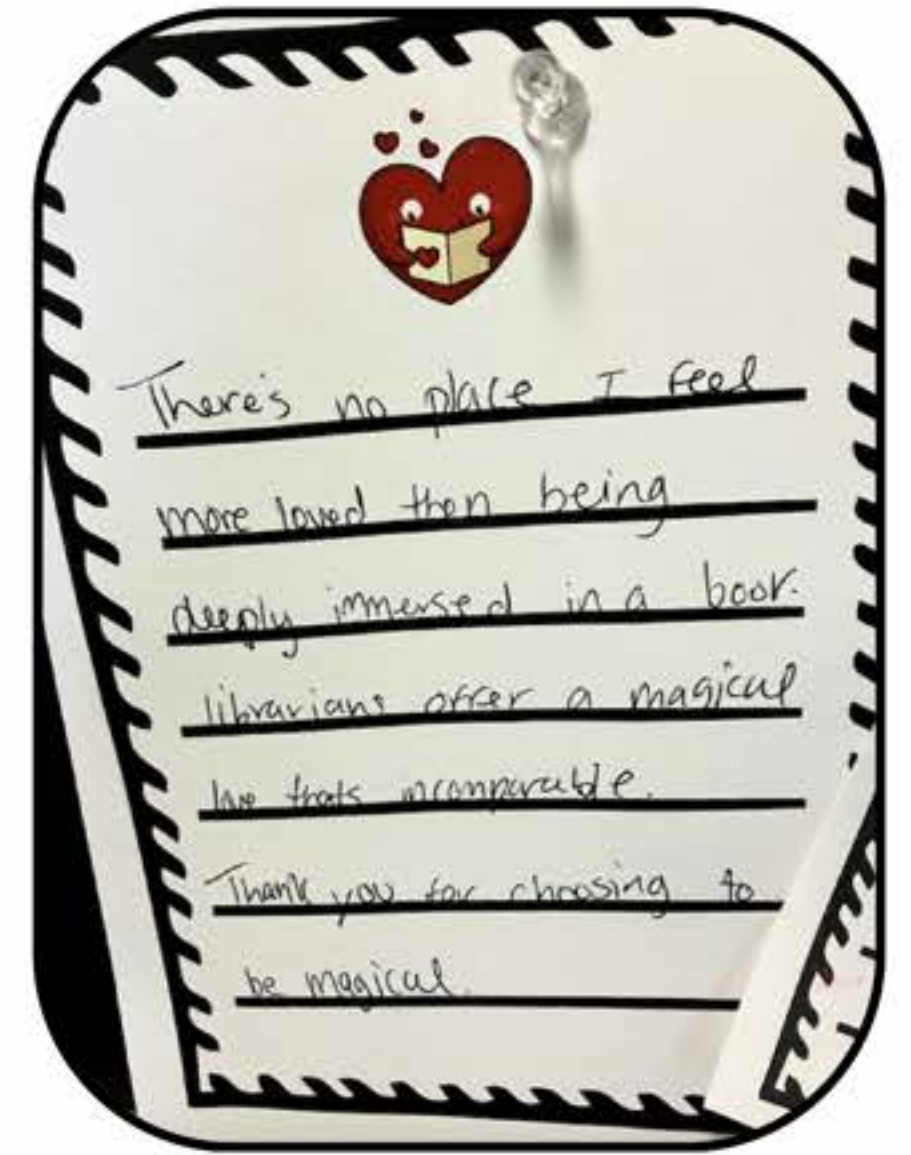 There's no place I feel
more loved then being
deeply immersed in a book.
librarians offer a magical
love thats incomparable.
Thank you for choosing to
be magical.